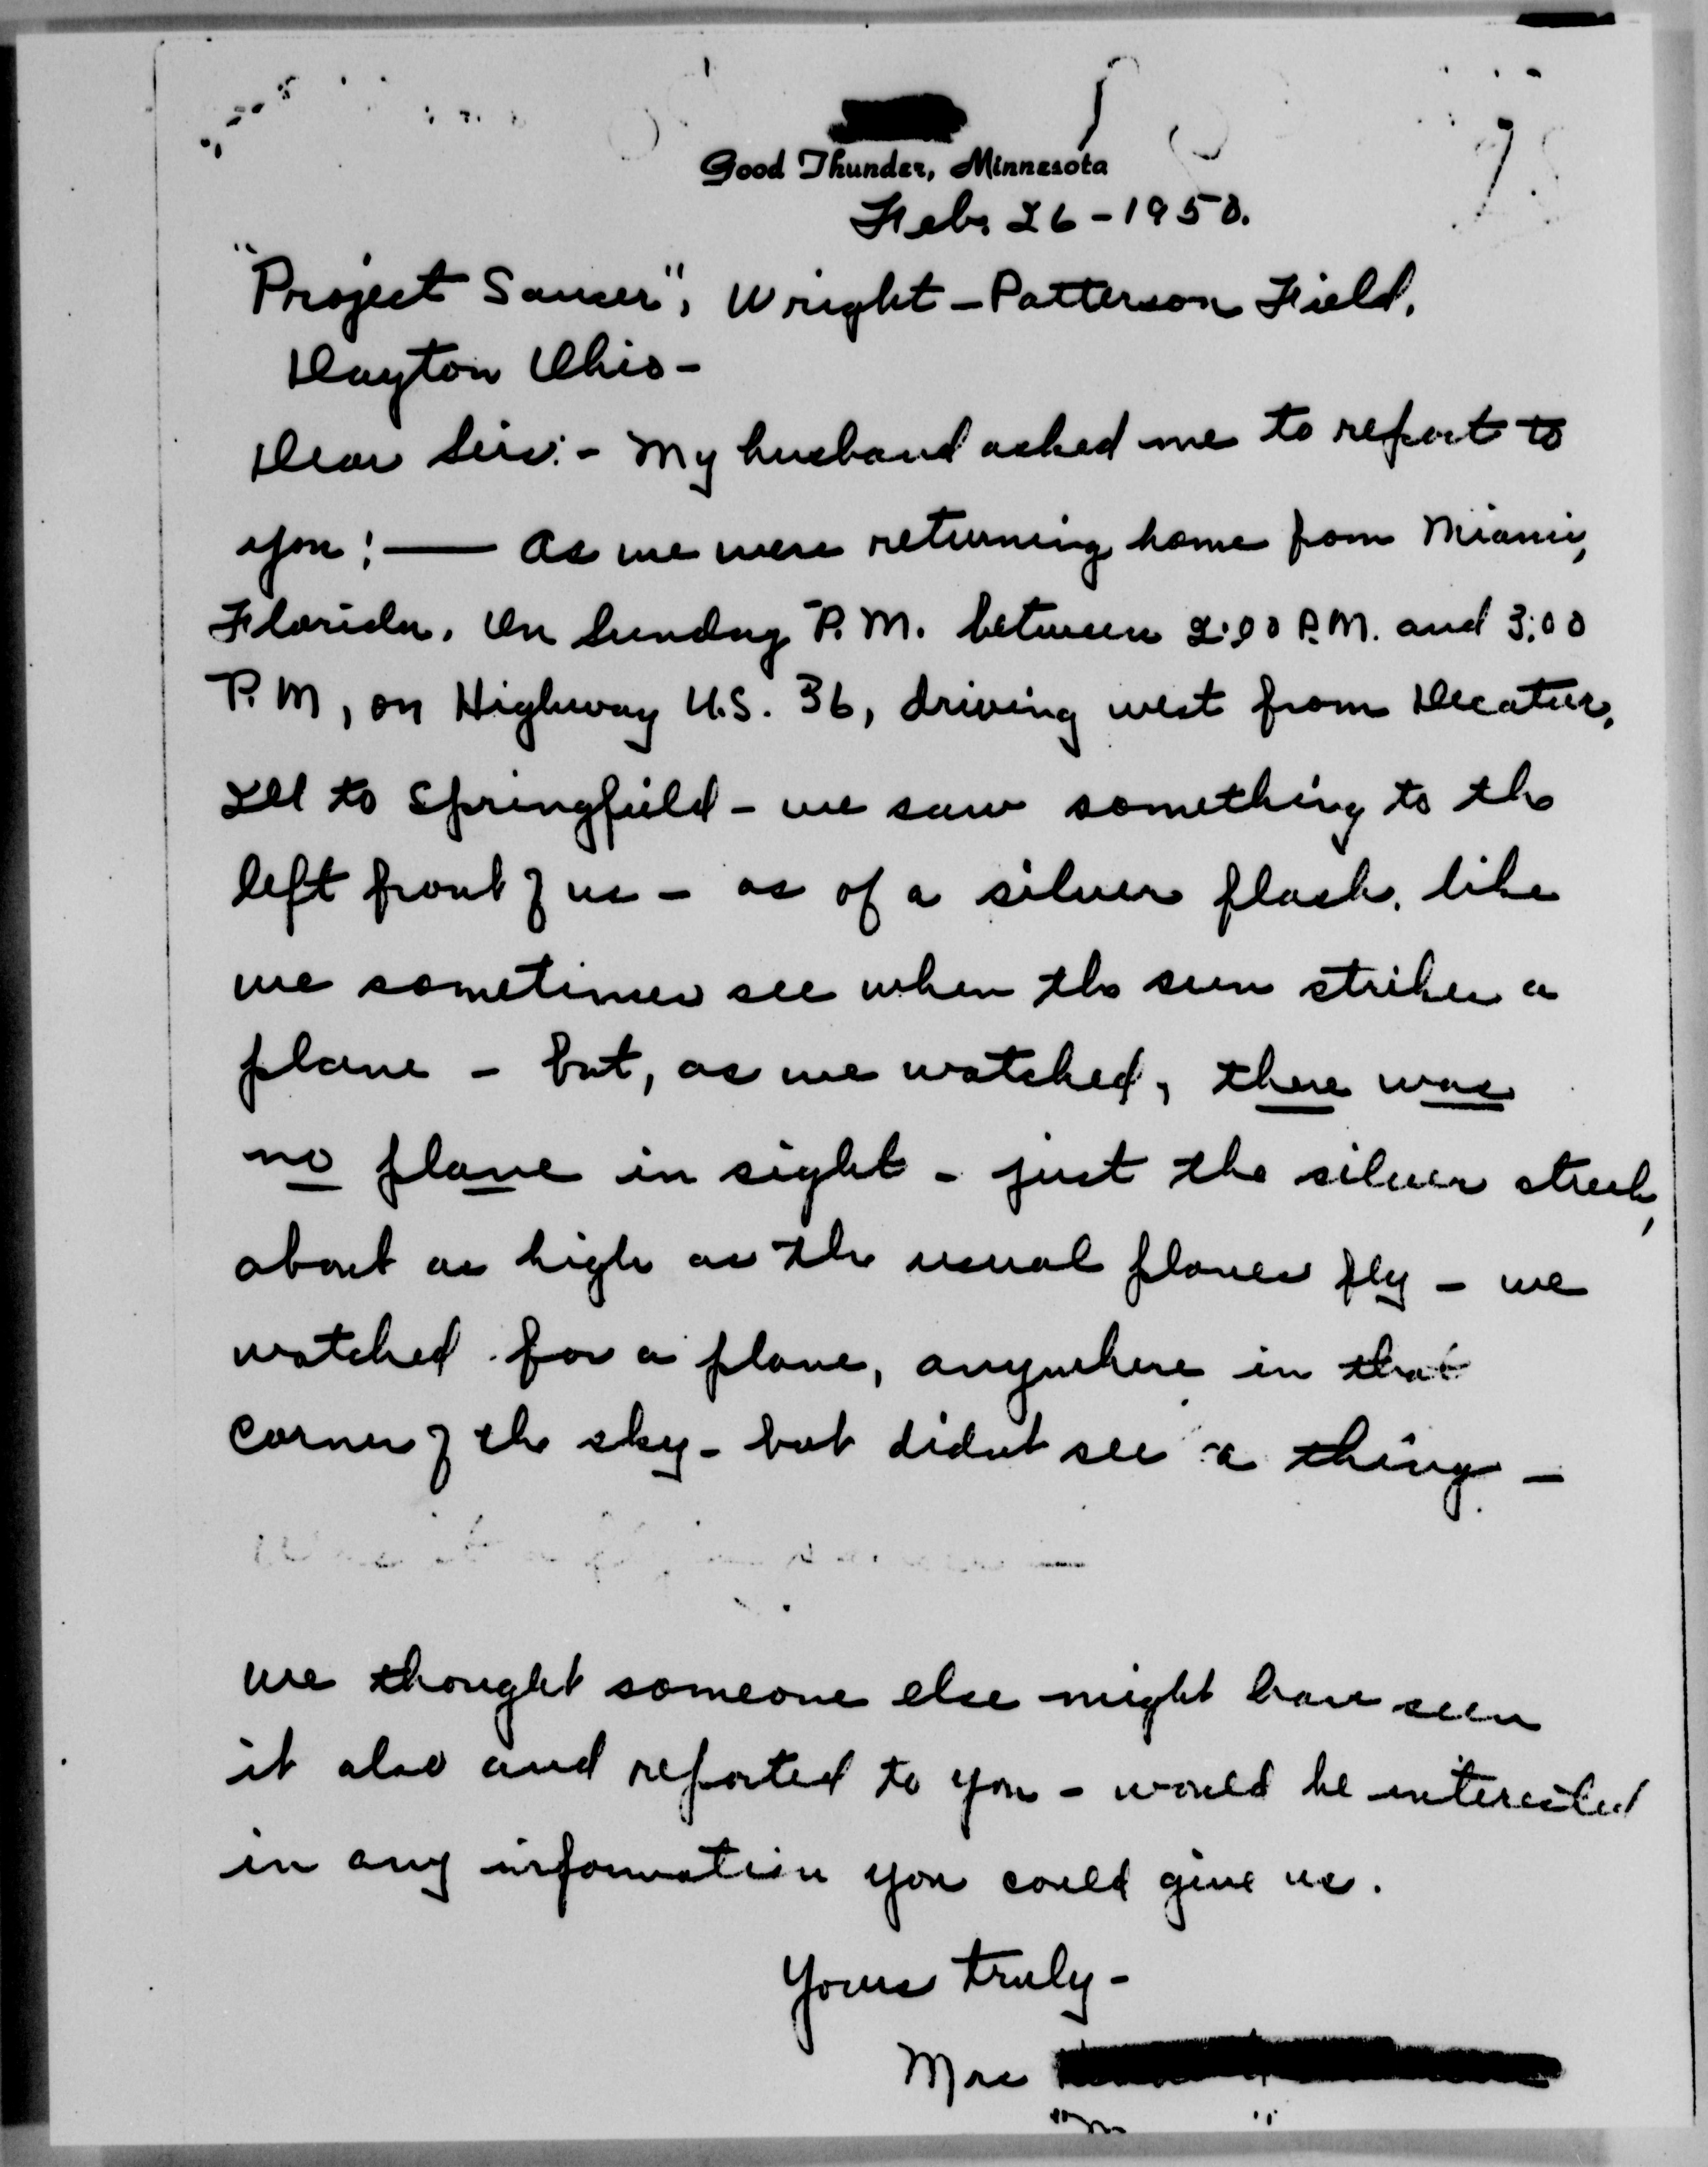 Good Thunder, Minnesota
Feb. 26-1950.
"Project Saucer", Wright-Patterson Field,
Dayton Ohio-
Dear Sirs:- My husband asked me to report to
you; — As we were returning home from Miami,
Florida. On Sunday P.M. between 2:00 P.M. and 3:00
P.M, on Highway U.S. 36, driving west from Decatur,
Ill to Springfield - we saw something to the
left front of us - as of a silver flash. like
we sometimes see when the sun strikes a
plane - but, as we watched, there was
no plane in sight - just the silver streak,
about as high as the usual planes fly - we
watched for a plane, anywhere in that
corner of the sky - but didnt see a thing -
We thought someone else might have seen
it also and reported to you - would be interested
in any information you could give us.
Yours truly -
Mrs